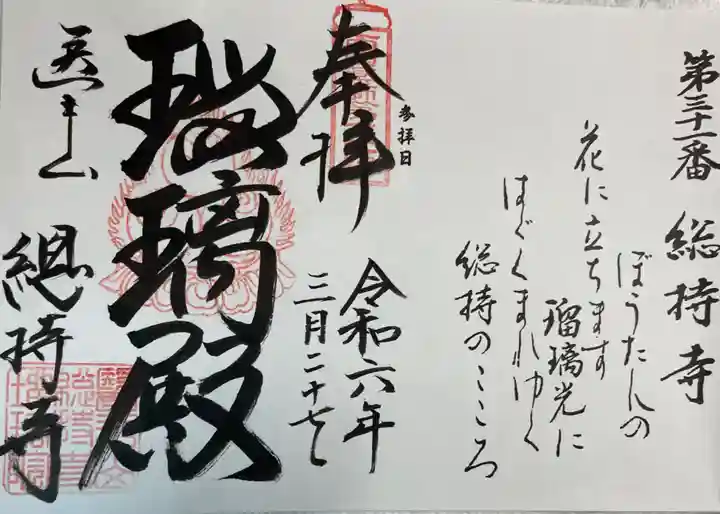 第三十一番 総持寺
ぼうたんの
花に立ちます
瑠璃光に
はぐくまれゆく
総持のこころ
奉拝
参拝日
令和六年
三月二十七日
瑠璃殿
医王山
總持寺